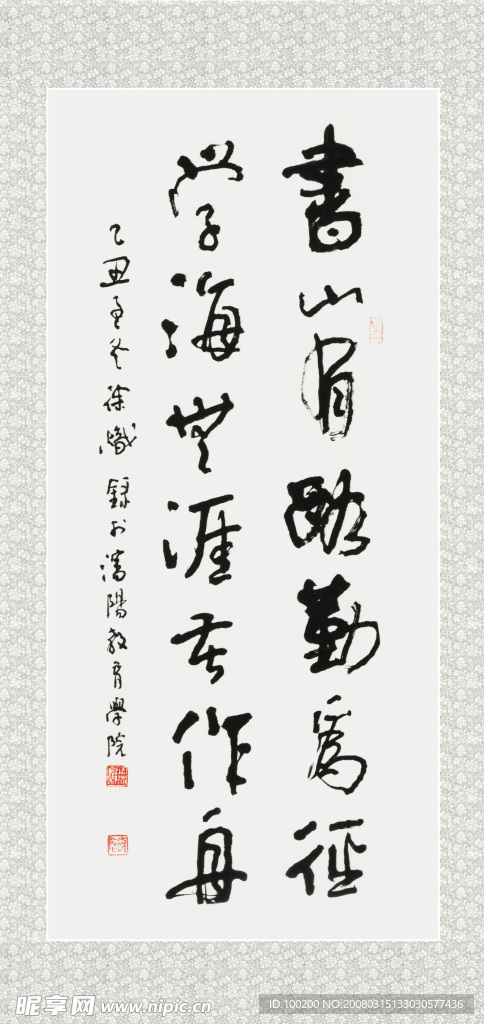 書山有路勤爲徑
學海無涯苦作舟
乙丑至冬徐熾錄於瀋陽教育學院
昵享网 www.nipic.cn
ID:100200 NO:20080315133030577436